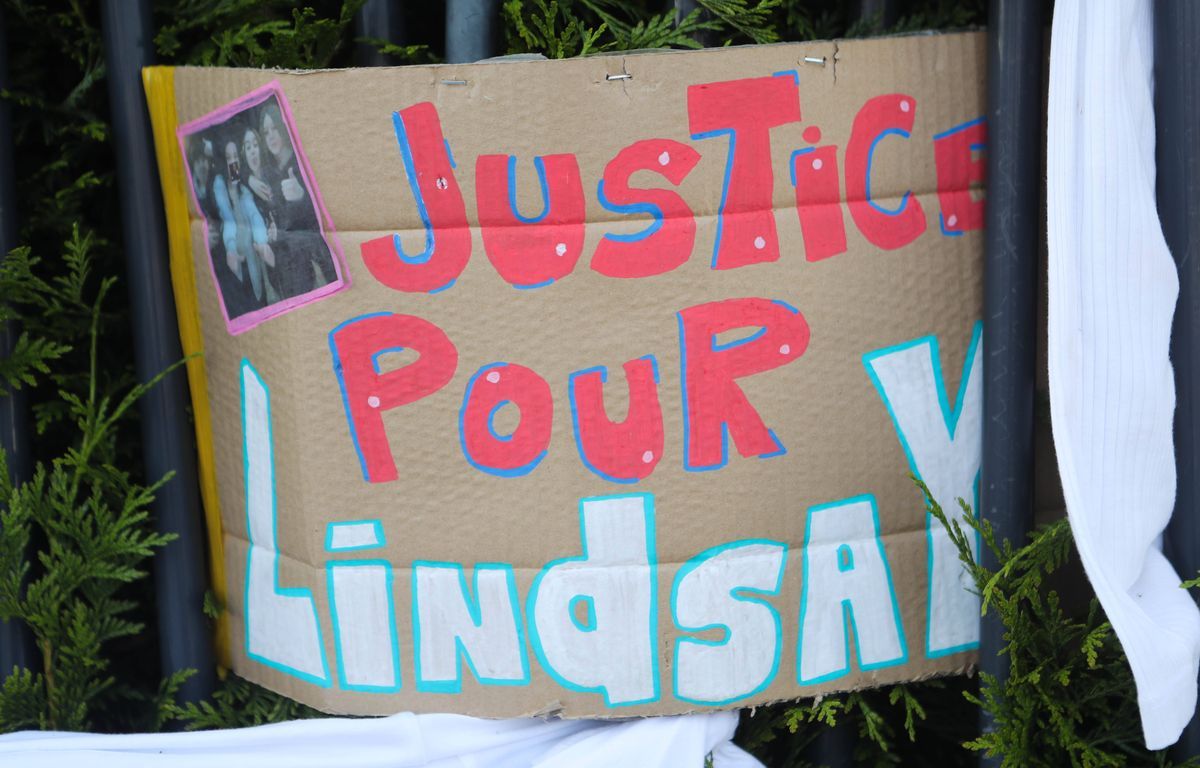 JUSTiCE
POUR
LiNdSAY